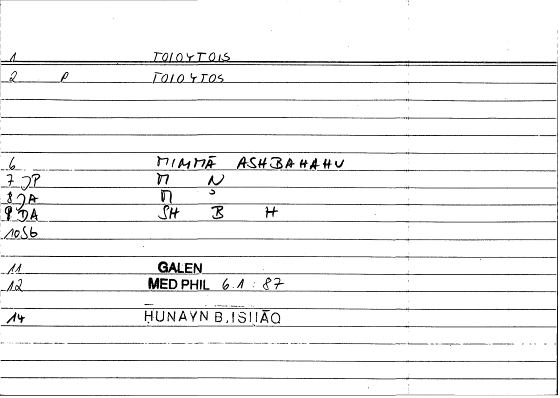 1 TOIOYTOIS
2 P TOIOYTOS
6 MIMMĀ ASHBAHAHU
7 JP M N
8 JA M
9 DA SH B H
10 Sb
11 GALEN
12 MED PHIL 6.1 : 87
14 ḤUNAYN B, ISḤĀQ